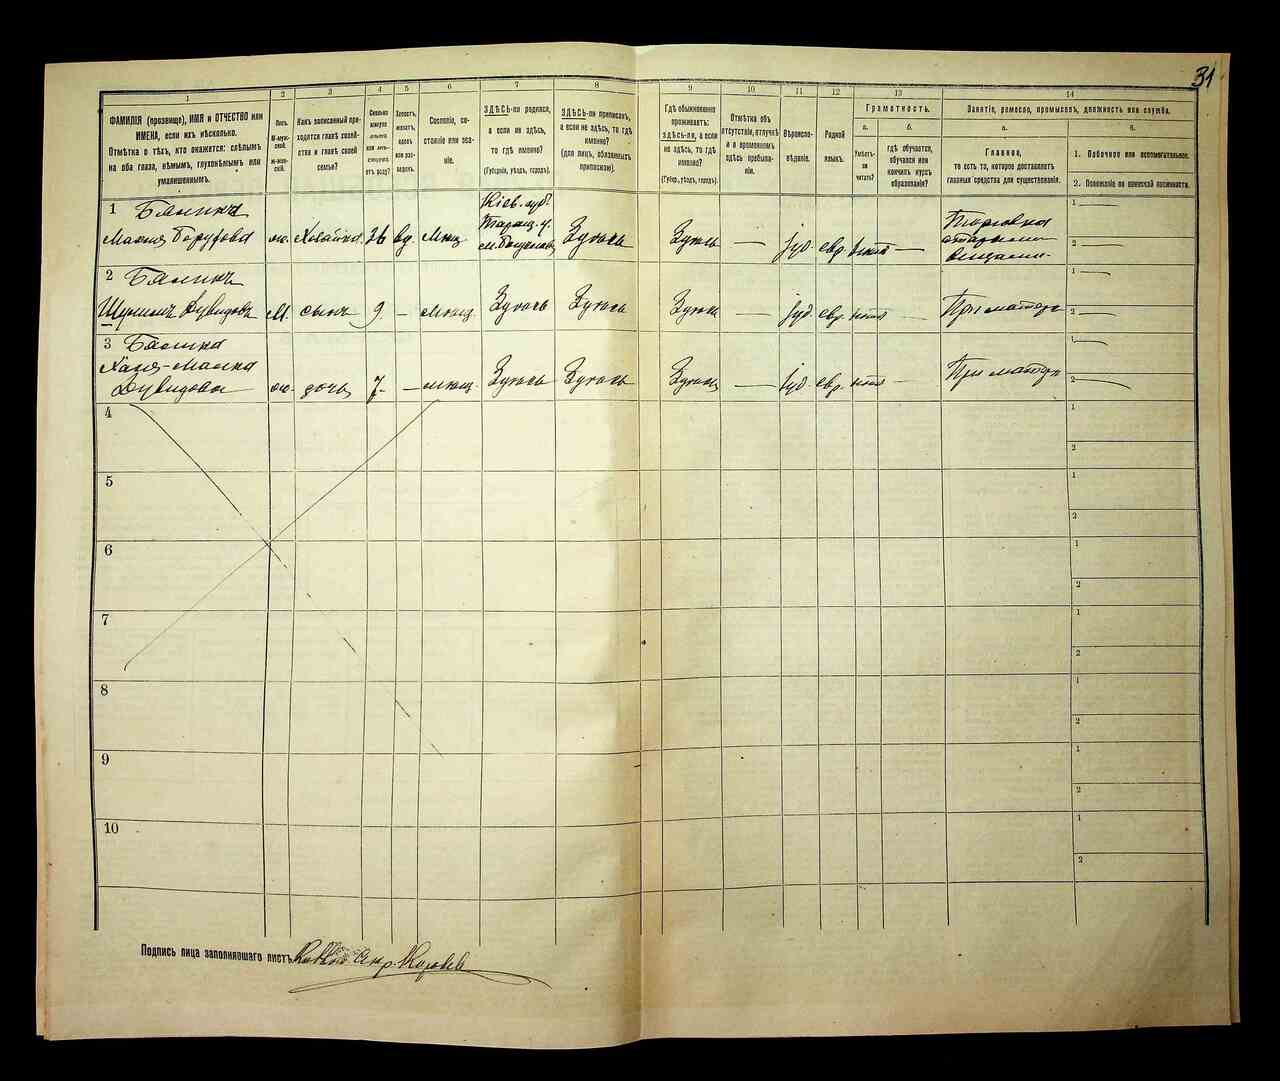 31
1
ФАМИЛІЯ (прозвище), ИМЯ и ОТЧЕСТВО или
ИМЕНА, если ихъ нѣсколько.
Отмѣтка о тѣхъ, кто окажется: слѣпымъ
на оба глаза, нѣмымъ, глухонѣмымъ или
умалишеннымъ.
2
Полъ.
М-муж-
ской.
ж-жен-
скій.
3
Какъ записанный при-
ходится главѣ хозяй-
ства и главѣ своей
семьи?
4
Сколько
минуло
лѣтъ
или мѣ-
сяцевъ
отъ роду?
5
Холостъ,
женатъ,
вдовъ
или раз-
веденъ.
6
Сословіе, со-
стояніе или зва-
ніе.
7
ЗДѢСЬ-ли родился,
а если не здѣсь,
то гдѣ именно?
(Губернія, уѣздъ, городъ).
8
ЗДѢСЬ-ли приписанъ,
а если не здѣсь, то гдѣ
именно?
(для лицъ, обязанныхъ
припиской).
9
Гдѣ обыкновенно
проживаетъ:
здѣсь-ли, а если
не здѣсь, то гдѣ
именно?
(Губер., уѣздъ, городъ).
10
Отмѣтка объ
отсутствіи, отлучкѣ
и о временномъ
здѣсь пребыва-
ніи.
11
Вѣроиспо-
вѣданіе.
12
Родной
языкъ.
13
Грамотность.
а.
Умѣетъ-
ли
читать?
б.
гдѣ обучается,
обучался или
кончилъ курсъ
образованія?
14
Занятіе, ремесло, промыселъ, должность или служба.
а.
Главное,
то есть то, которое доставляетъ
главныя средства для существованія.
б.
1. Побочное или вспомогательное.
2. Положеніе по воинской повинности.
1 Бяликъ
ж. Хозяйка 36 вд. Мѣщ
Кіев. губ.
Таращ. у.
Здѣсь
Здѣсь —
іуд. евр. нѣтъ —
Торговка
старыми
вещами.
1 —
2 —
2 Бяликъ
М. сынъ 9. — Мѣщ. Здѣсь Здѣсь
Здѣсь — іуд. евр. нѣтъ —
При матери
1 —
2 —
3 Бялика
Хая-Малка
Дувидова ж. дочь 7 — мѣщ. Здѣсь Здѣсь
Здѣсь — іуд. евр. нѣтъ —
При матери
1 —
2 —
4
1
2
5
1
2
6
1
2
7
1
2
8
1
2
9
1
2
10
1
2
Подпись лица заполнявшаго листъ